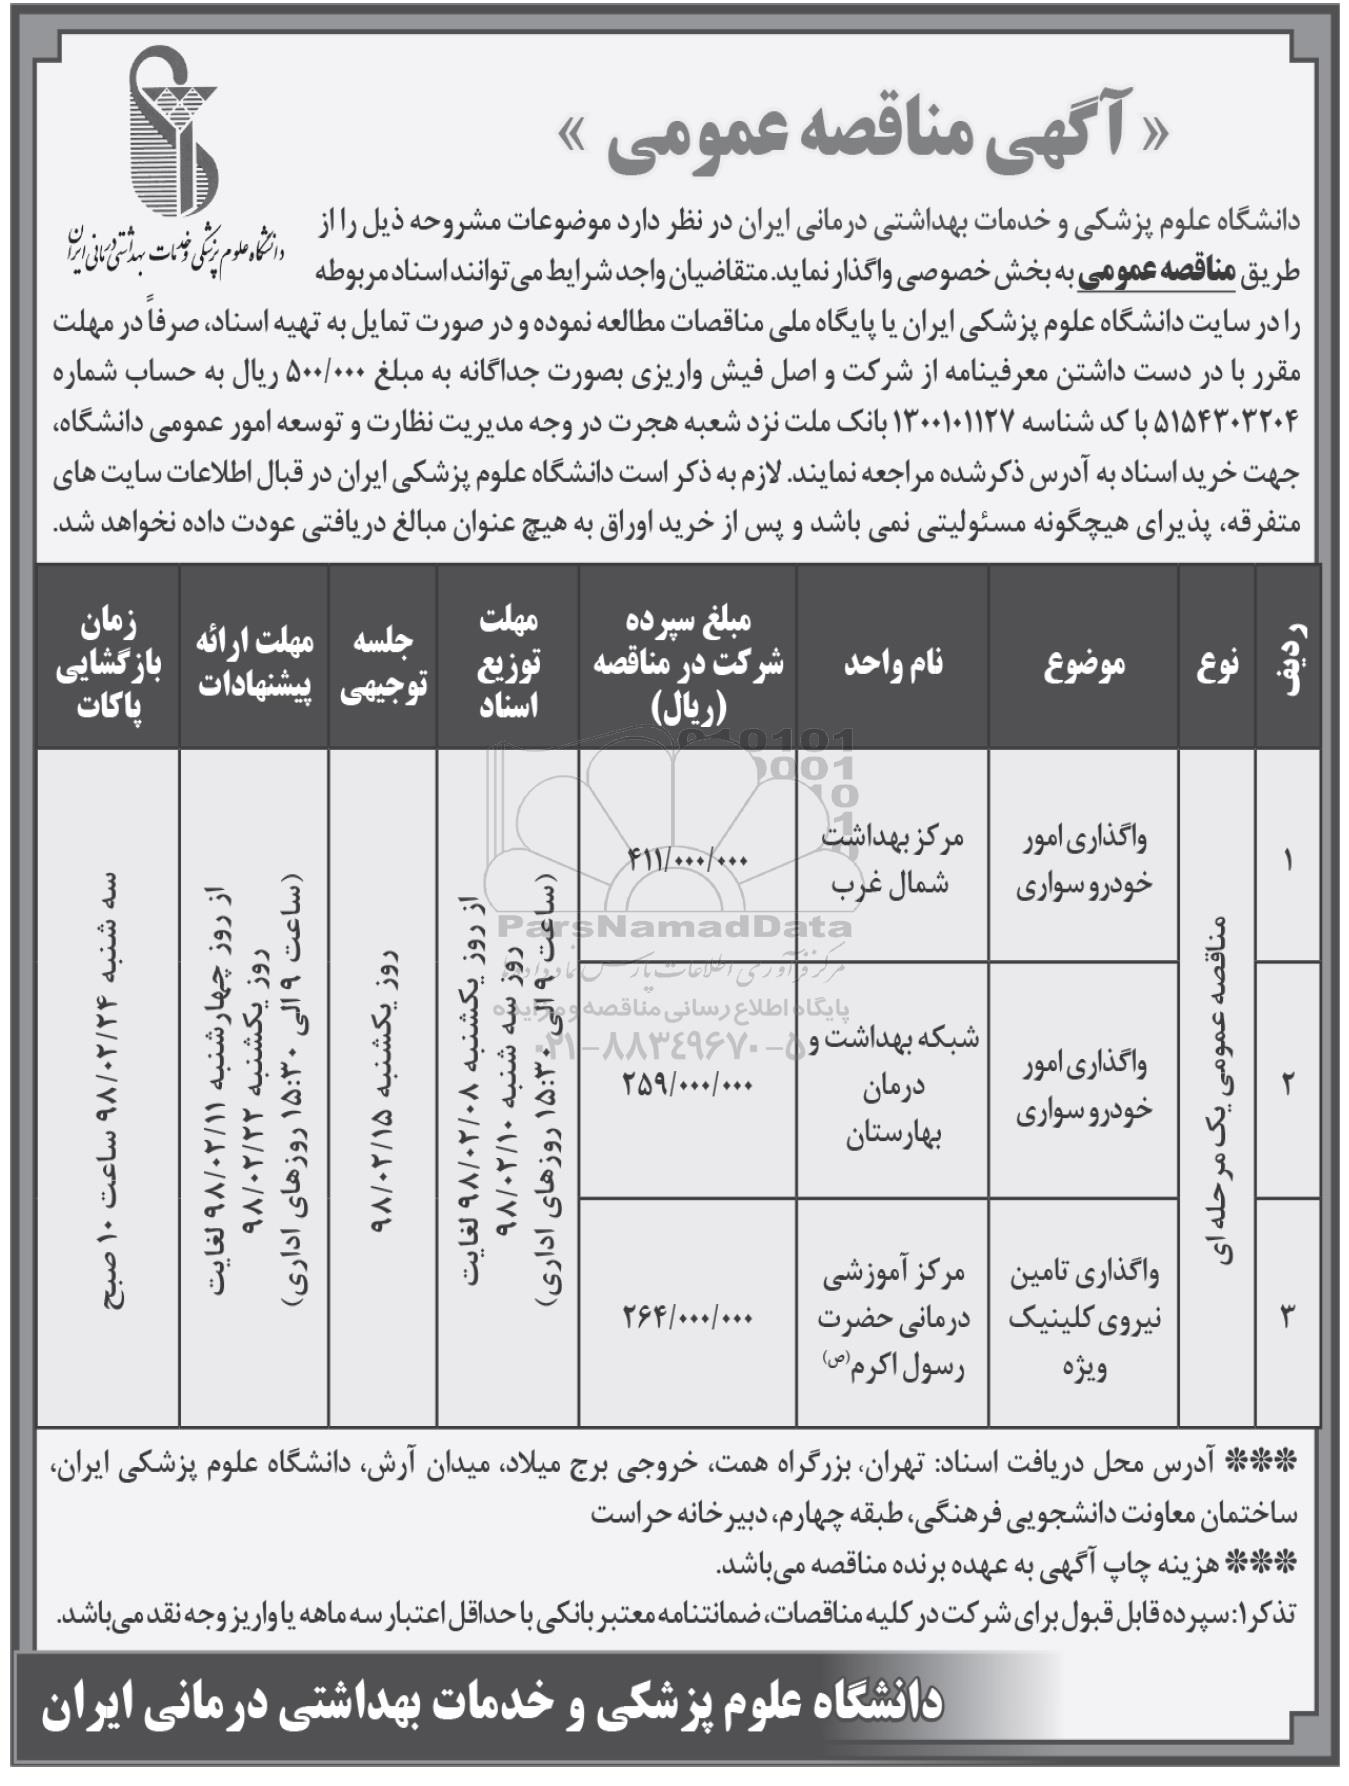 « آگهی مناقصه عمومی »
دانشگاه علوم پزشکی و خدمات بهداشتی درمانی ایران
دانشگاه علوم پزشکی و خدمات بهداشتی درمانی ایران در نظر دارد موضوعات مشروحه ذیل را از
طریق مناقصه عمومی به بخش خصوصی واگذار نماید. متقاضیان واجد شرایط می‌توانند اسناد مربوطه
را در سایت دانشگاه علوم پزشکی ایران یا پایگاه ملی مناقصات مطالعه نموده و در صورت تمایل به تهیه اسناد، صرفاً در مهلت
مقرر با در دست داشتن معرفینامه از شرکت و اصل فیش واریزی بصورت جداگانه به مبلغ ۵۰۰/۰۰۰ ریال به حساب شماره
۵۱۵۴۳۰۳۲۰۴ با کد شناسه ۱۳۰۰۱۰۱۱۲۷ بانک ملت نزد شعبه هجرت در وجه مدیریت نظارت و توسعه امور عمومی دانشگاه،
جهت خرید اسناد به آدرس ذکرشده مراجعه نمایند. لازم به ذکر است دانشگاه علوم پزشکی ایران در قبال اطلاعات سایت های
متفرقه، پذیرای هیچگونه مسئولیتی نمی باشد و پس از خرید اوراق به هیچ عنوان مبالغ دریافتی عودت داده نخواهد شد.
ردیف
نوع
موضوع
نام واحد
مبلغ سپرده
شرکت در مناقصه
(ریال)
مهلت
توزیع
اسناد
جلسه
توجیهی
مهلت ارائه
پیشنهادات
زمان
بازگشایی
پاکات
۱
مناقصه عمومی یک مرحله ای
واگذاری امور
خودرو سواری
مرکز بهداشت
شمال غرب
۴۱۱/۰۰۰/۰۰۰
از روز یکشنبه ۹۸/۰۲/۰۸ لغایت
روز سه شنبه ۹۸/۰۲/۱۰
(ساعت ۹ الی ۱۵:۳۰ روزهای اداری)
روز یکشنبه ۹۸/۰۲/۱۵
از روز چهارشنبه ۹۸/۰۲/۱۱ لغایت
روز یکشنبه ۹۸/۰۲/۲۲
(ساعت ۹ الی ۱۵:۳۰ روزهای اداری)
سه شنبه ۹۸/۰۲/۲۴ ساعت ۱۰ صبح
۲
واگذاری امور
خودرو سواری
شبکه بهداشت و
درمان
بهارستان
۲۵۹/۰۰۰/۰۰۰
۳
واگذاری تامین
نیروی کلینیک
ویژه
مرکز آموزشی
درمانی حضرت
رسول اکرم(ص)
۲۶۴/۰۰۰/۰۰۰
ParsNamadData
مرکز فرآوری اطلاعات پارس نماد داده ها
پایگاه اطلاع رسانی مناقصه و مزایده
۰۲۱-۸۸۳۴۹۶۷۰-۵
*** آدرس محل دریافت اسناد: تهران، بزرگراه همت، خروجی برج میلاد، میدان آرش، دانشگاه علوم پزشکی ایران،
ساختمان معاونت دانشجویی فرهنگی، طبقه چهارم، دبیرخانه حراست
*** هزینه چاپ آگهی به عهده برنده مناقصه می‌باشد.
تذکر۱: سپرده قابل قبول برای شرکت در کلیه مناقصات، ضمانتنامه معتبر بانکی با حداقل اعتبار سه ماهه یا واریز وجه نقد می‌باشد.
دانشگاه علوم پزشکی و خدمات بهداشتی درمانی ایران